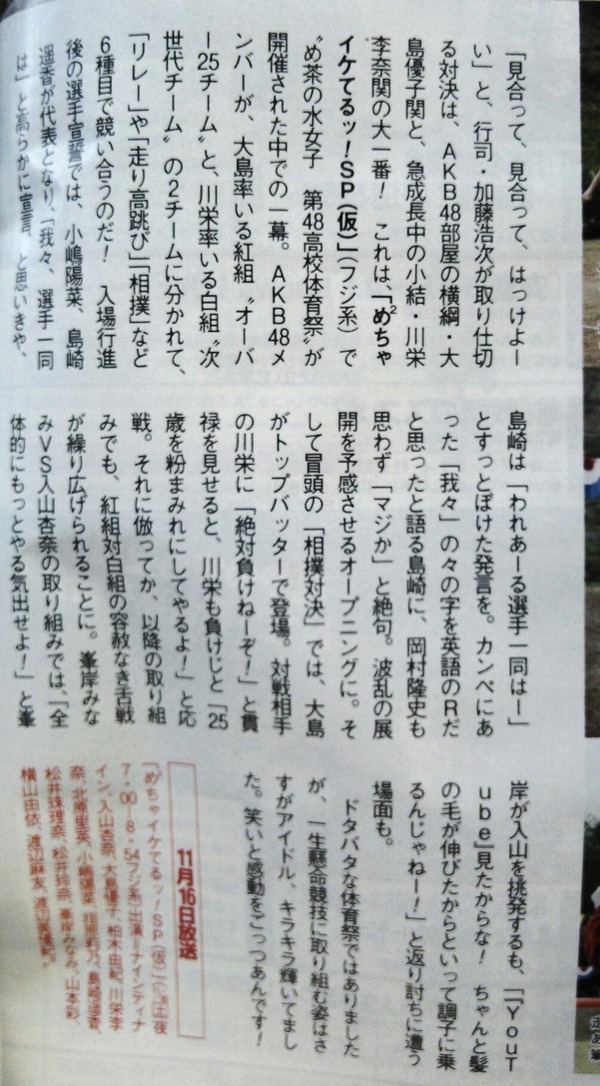 「見合って、見合って、はっけよー
い」と、行司・加藤浩次が取り仕切
る対決は、AKB48部屋の横綱・大
島優子関と、急成長中の小結・川栄
李奈関の大一番! これは、「めちゃ
2
イケてるッ!SP(仮)」(フジ系)で
〝め茶の水女子 第48高校体育祭〟が
開催された中での一幕。AKB48メ
ンバーが、大島率いる紅組〝オーバ
ー25チーム〟と、川栄率いる白組〝次
世代チーム〟の2チームに分かれて、
「リレー」や「走り高跳び」「相撲」など
6種目で競い合うのだ! 入場行進
後の選手宣誓では、小嶋陽菜、島崎
遥香が代表となり、「我々、選手一同
は」と高らかに宣言、と思いきや、
島崎は「われあーる選手一同はー」
とすっとぼけた発言を。カンペにあ
った「我々」の々の字を英語のRだ
と思ったと語る島崎に、岡村隆史も
思わず「マジか」と絶句。波乱の展
開を予感させるオープニングに。そ
して冒頭の「相撲対決」では、大島
がトップバッターで登場。対戦相手
の川栄に「絶対負けねーぞ!」と貫
禄を見せると、川栄も負けじと「25
歳を粉まみれにしてやるよ!」と応
戦。それに倣ってか、以降の取り組
みでも、紅組対白組の容赦なき舌戦
が繰り広げられることに。峯岸みな
みVS入山杏奈の取り組みでは、「全
体的にもっとやる気出せよ!」と峯
岸が入山を挑発するも、「『YouT
ube』見たからな! ちゃんと髪
の毛が伸びたからといって調子に乗
るんじゃねー!」と返り討ちに遭う
場面も。
ドタバタな体育祭ではありました
が、一生懸命競技に取り組む姿はさ
すがアイドル、キラキラ輝いてまし
た。笑いと感動をごっつあんです!
11月16日放送
「めちゃイケてるッ!SP(仮)」(土夜
7・00〜8・54フジ系)出演=ナインティナ
イン、入山杏奈、大島優子、柏木由紀、川栄李
奈、北原里英、小嶋陽菜、指原莉乃、島崎遥香、
松井珠理奈、松井玲奈、峯岸みなみ、山本彩、
横山由依、渡辺麻友、渡辺美優紀。